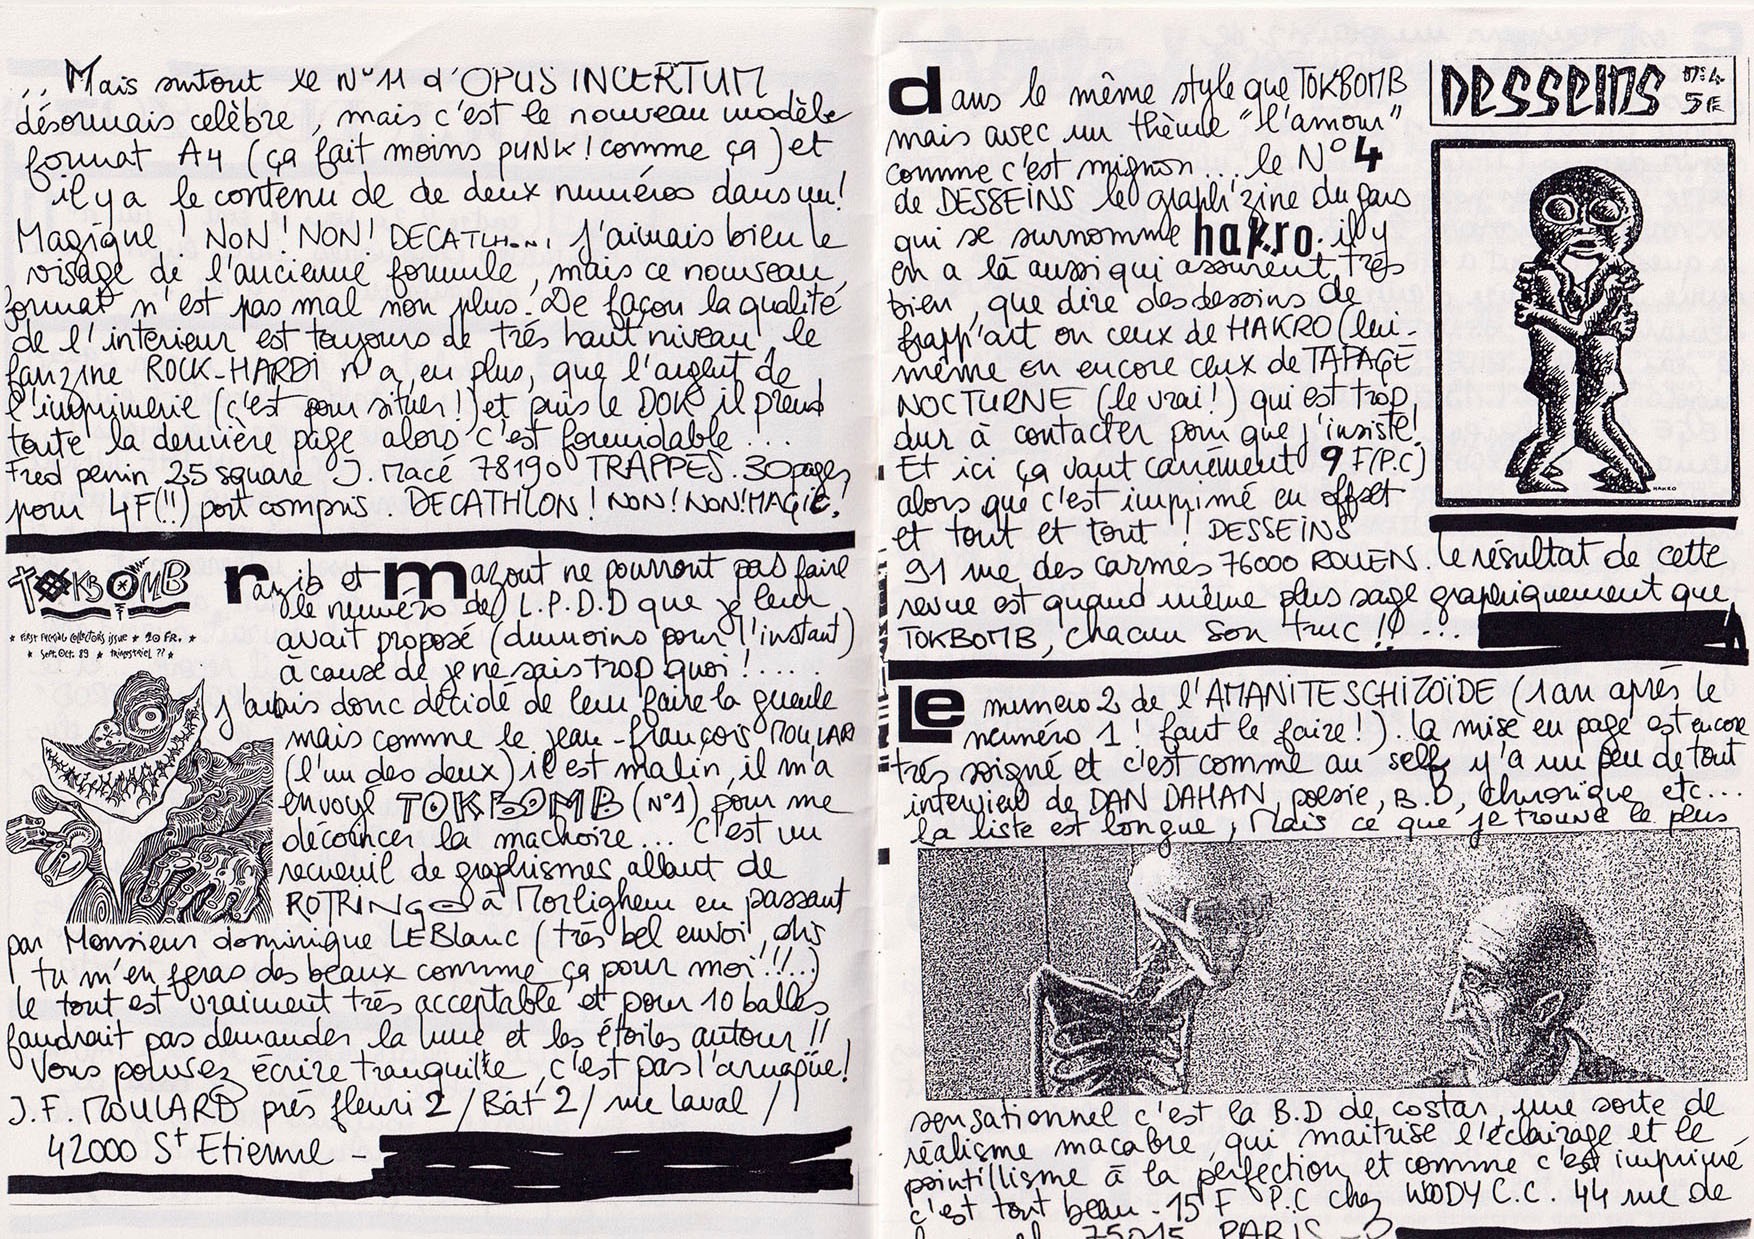 .. Mais surtout le N°11 d'OPUS INCERTUM
désormais celèbre, mais c'est le nouveau modèle
format A4 (ça fait moins PUNK! comme ça) et
il y a le contenu de de deux numéros dans un!
Magique! NON! NON! DECATHLON! J'aimais bien le
visage de l'ancienne formule, mais ce nouveau
format n'est pas mal non plus. De façon la qualité
de l'interieur est toujours de trés haut niveau, le
fanzine ROCK-HARDI n'a, en plus, que l'argent de
l'imprimerie (c'est pour situer!) et puis le DOK il prend
toute la dernière page alors c'est formidable...
Fred penin 25 square J. Macé 78190 TRAPPES. 30 pages
pour 4F(!!) port compris DECATHLON! NON! NON! MAGIC!
TOKBOMB
* FIRST SPECIAL COLLECTORS ISSUE * 20 FR. *
* Sept. Oct. 89 * TRIMESTRIEL ?? *
razib et mazout ne pourront pas faire
le numéro de L.P.D.D que je leur
avait proposé (dumoins pour l'instant)
à cause de je ne sais trop quoi!....
j'avais donc décidé de leur faire la gueule
mais comme le jean-françois MOULARD
(l'un des deux) il est malin, il m'a
envoyé TOKBOMB (N°1) pour me
décoincer la machoire... C'est un
recueuil de graphismes allant de
ROTRINGO à Morlighem en passant
par Monsieur dominique LEBlanc (très bel envoi, dis
tu m'en feras des beaux comme ça pour moi!!!...)
le tout est vraiment très acceptable et pour 10 balles
faudrait pas demander la lune et les étoiles autour!!
Vous pouvez écrire tranquille, c'est pas l'arnaque!
J.F. MOULARD près fleuri 2 / Bât 2 / rue Laval /
42000 St Etienne -
dans le même style que TOKBOMB
mais avec un thème "l'amour"
comme c'est mignon... le N°4
de DESSEINS le graph'zine du gars
qui se surnomme hakro. il y
en a là aussi qui assurent très
bien, que dire des dessins de
frapp'art ou ceux de HAKRO (lui-
même ou encore ceux de TAPAGE
NOCTURNE (le vrai!) qui est trop
dur à contacter pour que j'insiste!
Et ici ça vaut carrément 9 F(P.C)
alors que c'est imprimé en offset
et tout et tout! DESSEINS
91 rue des carmes 76000 ROUEN. Le résultat de cette
revue est quand même plus sage graphiquement que
TOKBOMB, chacun son truc!!...
DESSEINS N°4
5F
HAKRO
Le numero 2 de l'AMANITE SCHIZOÏDE (1 an après le
numéro 1! faut le faire!). la mise en page est encore
très soigné et c'est comme au self y'a un peu de tout
interview de DAN DAHAN, poesie, B.D, chronique etc...
la liste est longue, Mais ce que je trouve le plus
sensationnel c'est la B.D de costar, une sorte de
réalisme macabre, qui maitrise l'éclairage et le
pointillisme à la perfection et comme c'est imprimé
c'est tout beau. 15F P.C chez WOODY C.C. 44 rue de
75015 PARIS